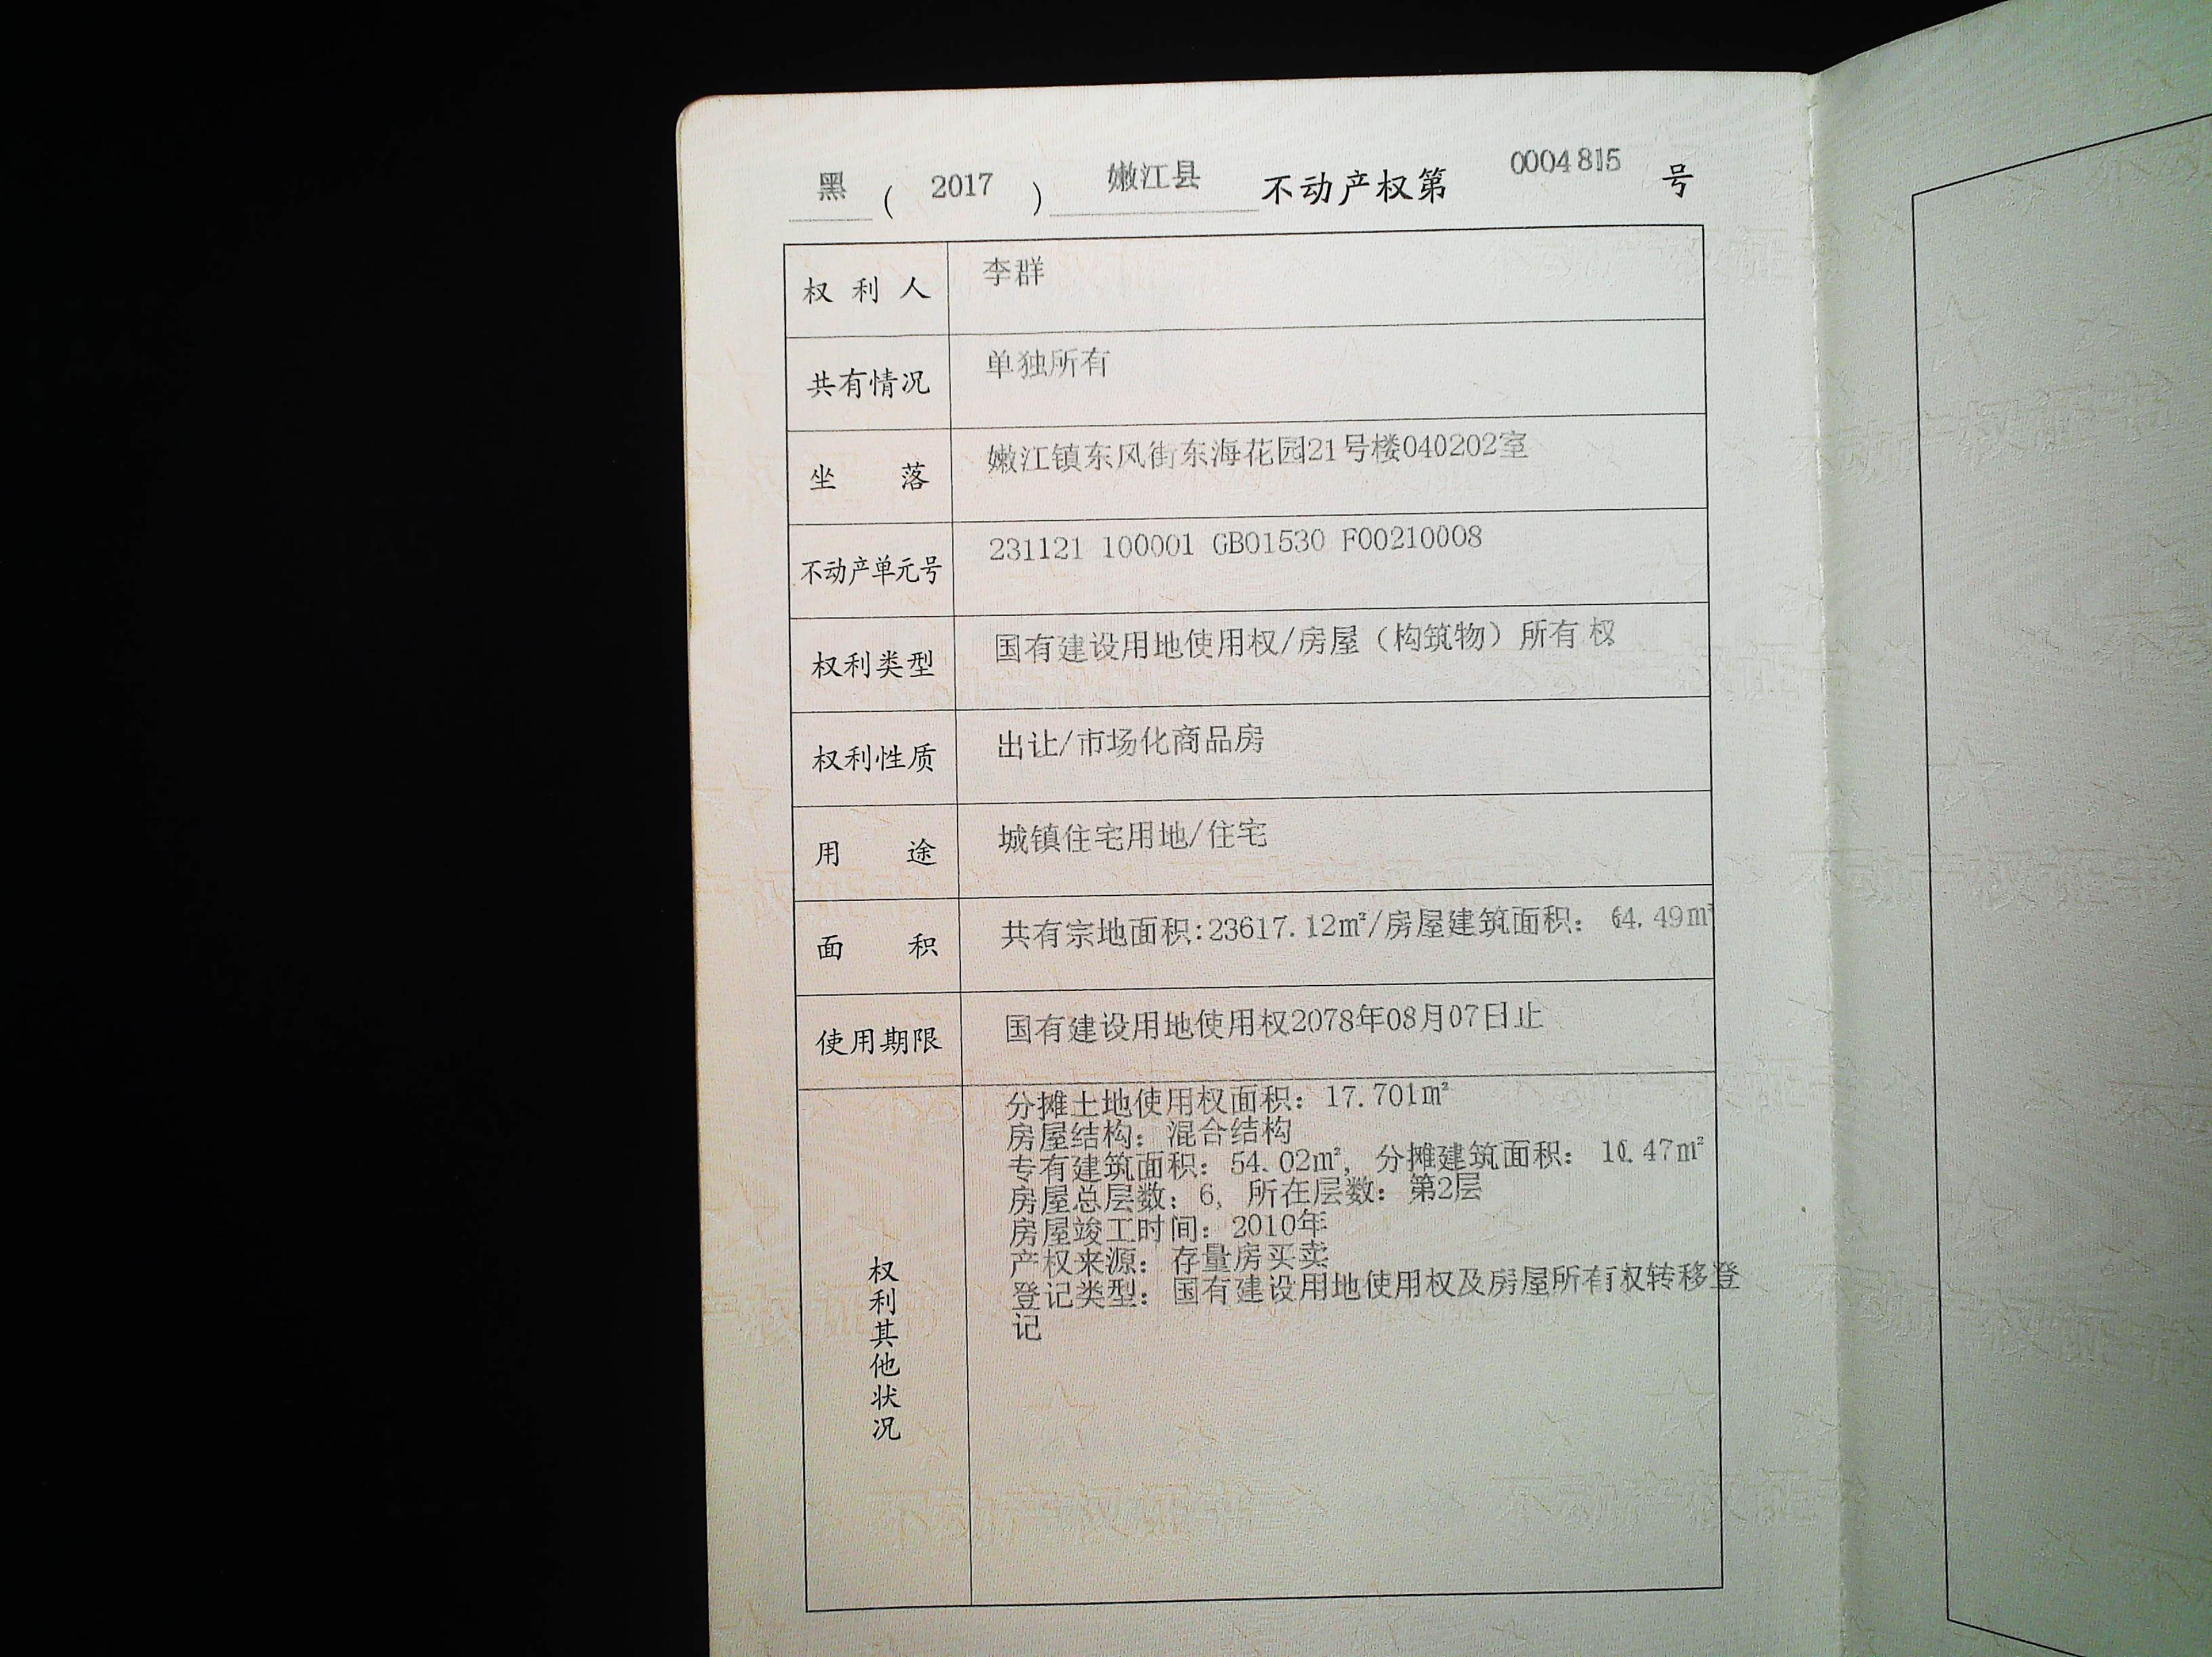 黑 ( 2017 ) 嫩江县 不动产权第 0004815 号
权利人 李群
共有情况 单独所有
坐落 嫩江镇东风街东海花园21号楼040202室
不动产单元号 231121 100001 GB01530 F00210008
权利类型 国有建设用地使用权/房屋（构筑物）所有权
权利性质 出让/市场化商品房
用途 城镇住宅用地/住宅
面积 共有宗地面积:23617.12㎡/房屋建筑面积: 64.49㎡
使用期限 国有建设用地使用权2078年08月07日止
权利其他状况
分摊土地使用权面积: 17.701㎡
房屋结构: 混合结构
专有建筑面积: 54.02㎡, 分摊建筑面积: 10.47㎡
房屋总层数: 6, 所在层数: 第2层
房屋竣工时间: 2010年
产权来源: 存量房买卖
登记类型: 国有建设用地使用权及房屋所有权转移登
记